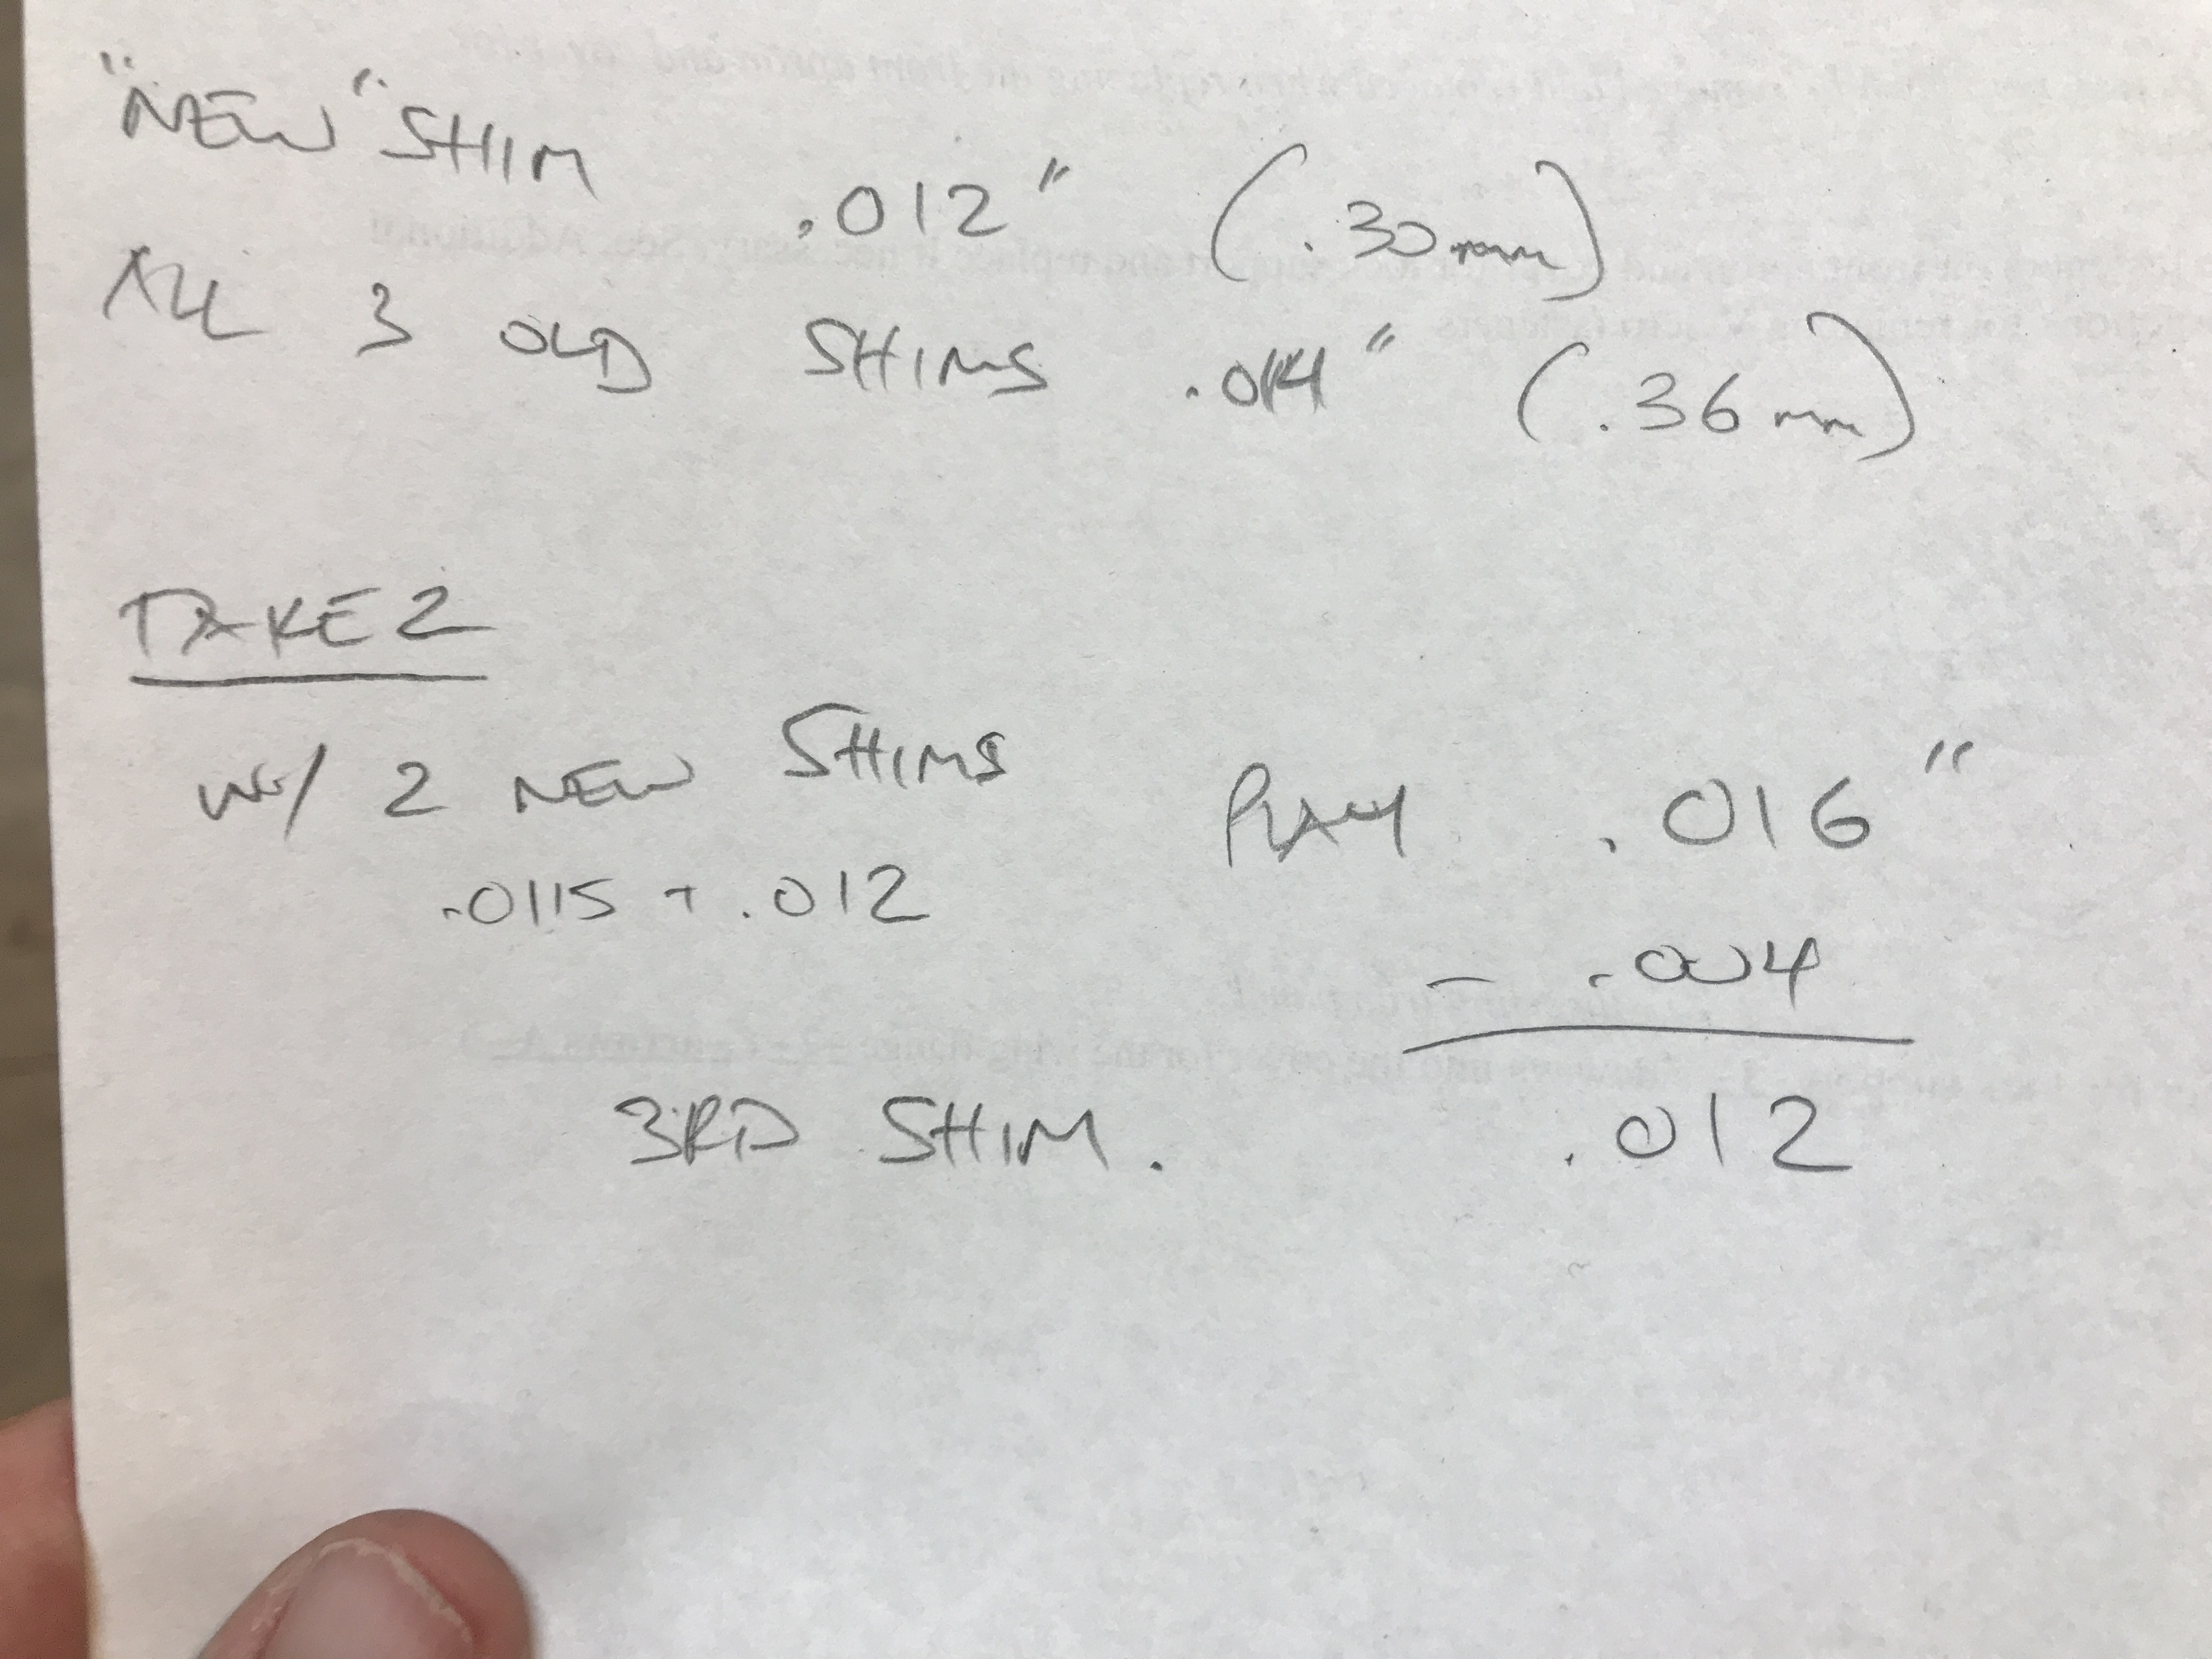 "NEW" SHIM .012" (.30mm)
ALL 3 OLD SHIMS .014" (.36mm)
TAKE 2
W/ 2 NEW SHIMS PLAY .016"
.0115 + .012
- .004
3RD SHIM. .012